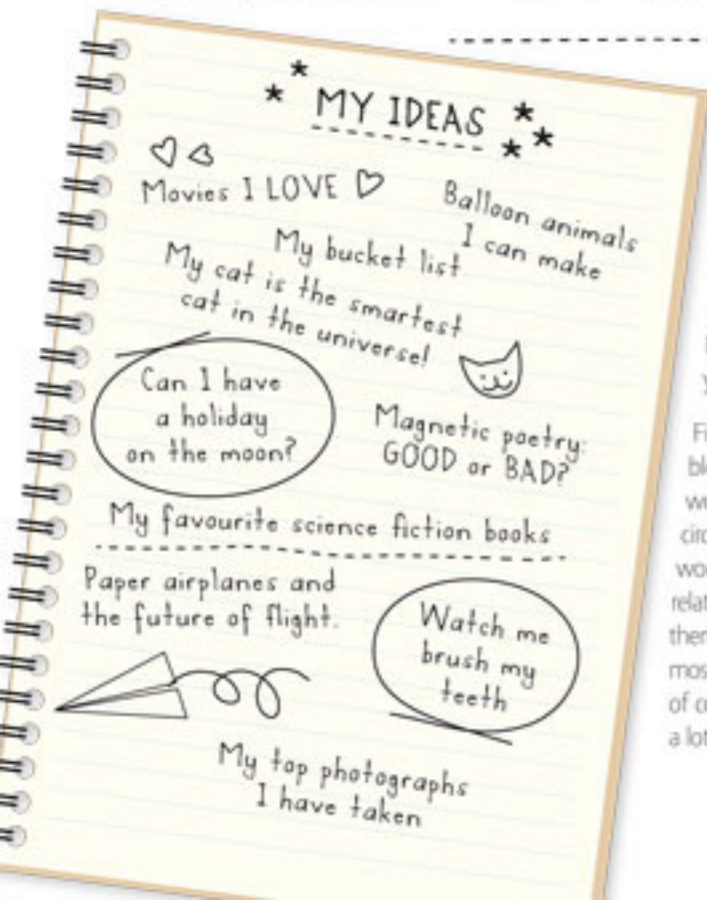 MY IDEAS
Movies I LOVE
Balloon animals
I can make
My bucket list
My cat is the smartest
cat in the universe!
Can I have
a holiday
on the moon?
Magnetic poetry:
GOOD or BAD?
My favourite science fiction books
Paper airplanes and
the future of flight.
Watch me
brush my
teeth
My top photographs
I have taken
of
a lot